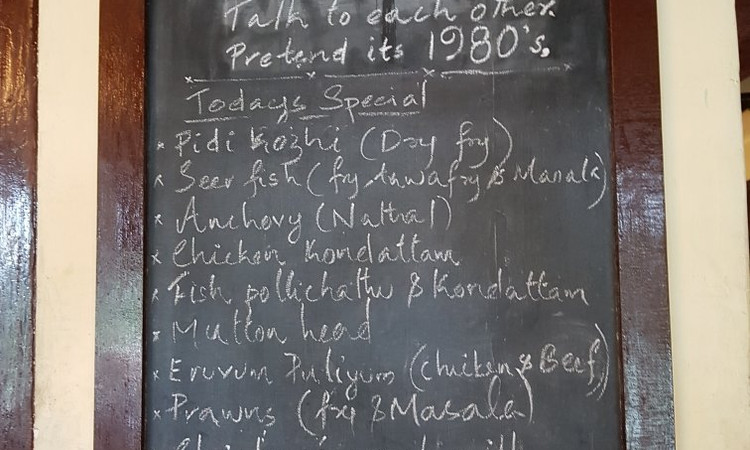 Talk to each other.
Pretend its 1980's.
Todays Special
* Pidi Kozhi (Dry fry)
* Seer fish (fry, tawafry & Masala)
* Anchovy (Nathal)
* Chicken Kondattam
* Fish pollichathu & Kondattam
* Mutton head
* Eruvum Puliyum (chicken & Beef)
* Prawns (fry & Masala)